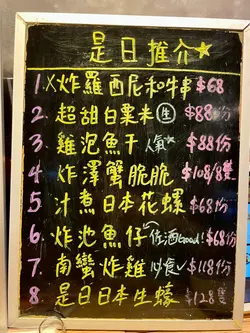 是日推介★
1. X炸羅西尼和牛串 $68
2. 超甜白粟米(生) $88份
3. 雞泡魚干 人氣* $88份
4. 炸澤蟹脆脆 $108/8隻
5 汁煮日本花螺 $68份
6. 炸池魚仔 佐酒Good! $68份
7. 南蠻炸雞 必食✓ $118份
8 是日日本生蠔 $128隻